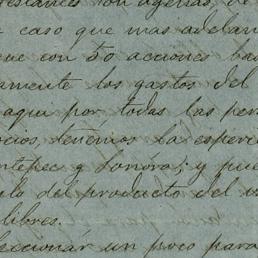 estantes son agenas, de
caso que mas adelan
ue con 50 acciones ba
amente los gastos del
aqui por todas las per
ocios, tenemos la esper
ntepec y Sonora; y pue
del producto del
libres.
eccionár un poco para